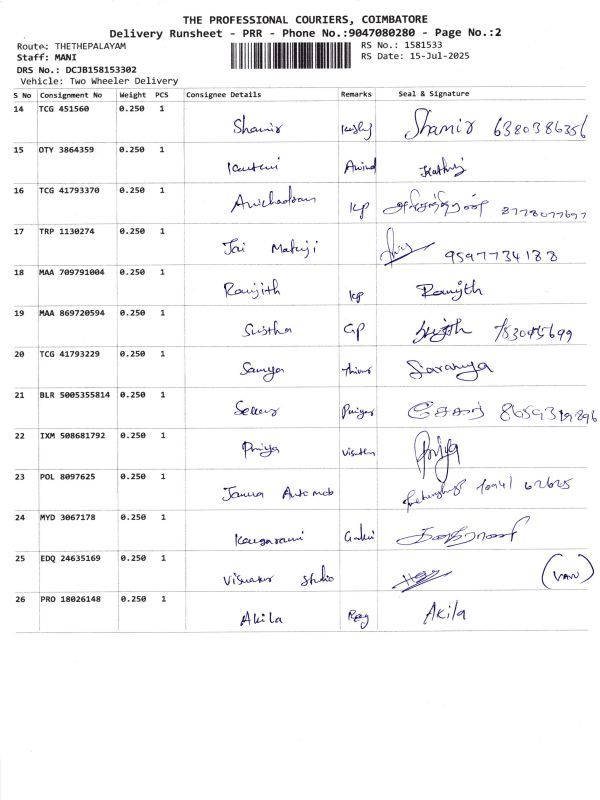 THE PROFESSIONAL COURIERS, COIMBATORE
Delivery Runsheet - PRR - Phone No.:9047080280 - Page No.:2
Route: THETHEPALAYAM RS No.: 1581533
Staff: MANI RS Date: 15-Jul-2025
DRS No.: DCJB158153302
Vehicle: Two Wheeler Delivery
S No Consignment No Weight PCS Consignee Details Remarks Seal & Signature
14 TCG 451560 0.250 1 Shamir Shamir 6380386356
15 OTY 3864359 0.250 1
16 TCG 41793370 0.250 1 KP
17 TRP 1130274 0.250 1 Jai Mataji 9597734188
18 MAA 709791004 0.250 1 Ranjith KP Ranjith
19 MAA 869720594 0.250 1 GP
20 TCG 41793229 0.250 1 Saranya
21 BLR 5005355814 0.250 1 சேகர்
22 IXM 508681792 0.250 1 Priya Priya
23 POL 8097625 0.250 1
24 MYD 3067178 0.250 1
25 EDQ 24635169 0.250 1 Studio (VAN)
26 PRO 18026148 0.250 1 Akila Akila